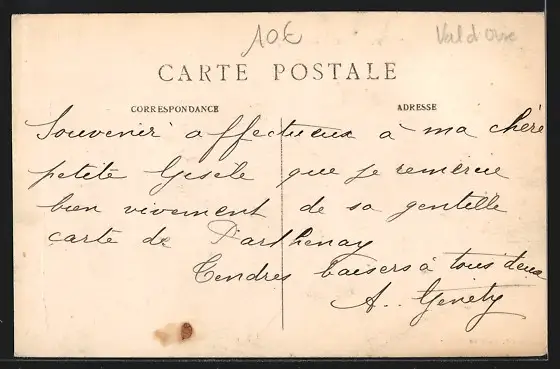 10€ Val d'Oise
CARTE POSTALE
CORRESPONDANCE ADRESSE
Souvenir affectueux à ma chère
petite Gisèle que je remercie
bien vivement de sa gentille
carte de Parthenay
Tendres baisers à tous deux
A. Genety